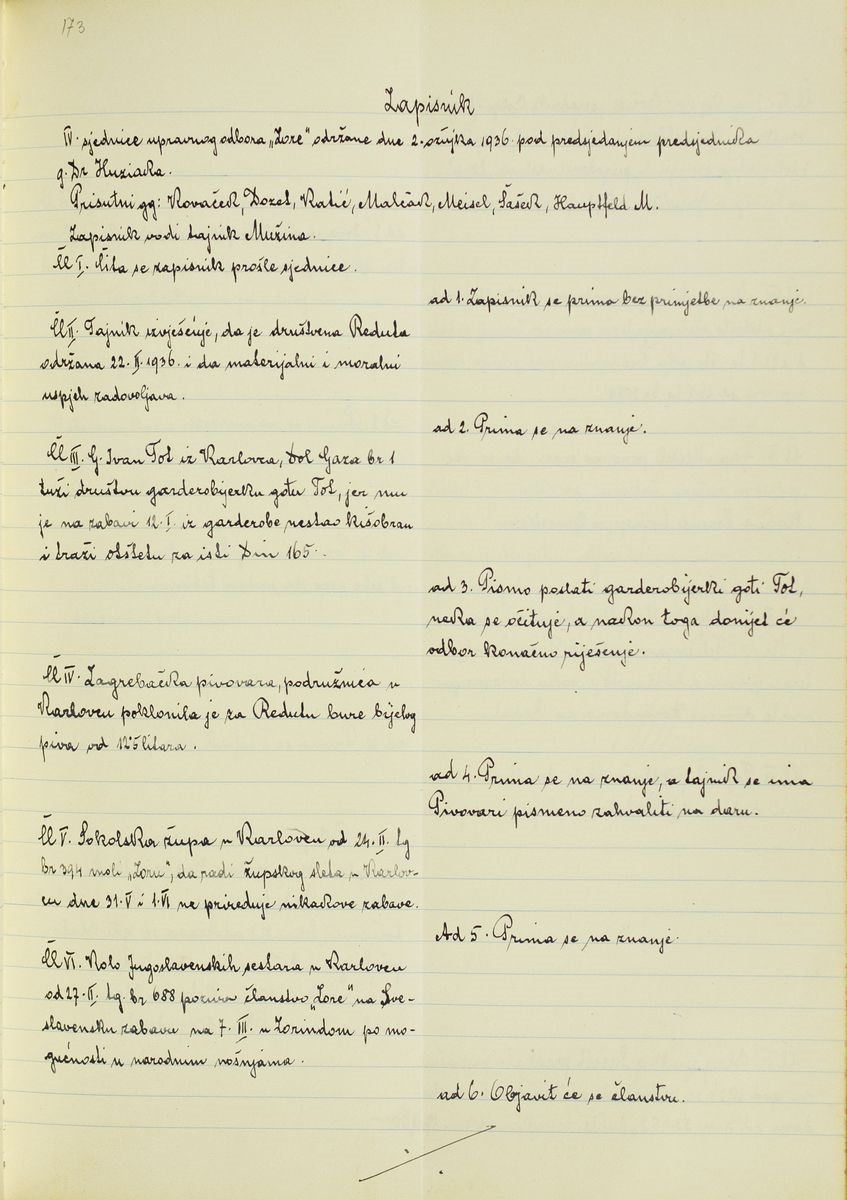 173
Zapisnik
IV. sjednice upravnog odbora „Zore" održane dne 2. ožujka 1936 pod predsjedanjem predsjednika
g. Dr Huziaka.
Prisutni gg: Kovaček, Dozet, Katić, Malčak, Meisel, Šašek, Hauptfeld M.
Zapisnik vodi tajnik Mužina.
Čl I. Čita se zapisnik prošle sjednice.
ad 1. Zapisnik se prima bez primjetbe na znanje.
Čl II. Tajnik izvješćuje, da je društvena Reduta
održana 22. II. 1936. i da materijalni i moralni
uspjeh zadovoljava.
ad 2. Prima se na znanje.
Čl III. G. Ivan Tot iz Karlovca, Dol Gaza br 1
tuži društvu garderobijerku gđu Tot, jer mu
je na zabavi 12. I. iz garderobe nestao kišobran
i traži otštetu za isti Din 165.-
ad 3. Pismo poslati garderobijerki gđi Tot,
neka se očituje, a nakon toga donijet će
odbor konačno riješenje.
Čl IV. Zagrebačka pivovara, podružnica u
Karlovcu poklonila je za Redutu bure bijelog
piva od 125 litara.
ad 4. Prima se na znanje, a tajnik se ima
Pivovari pismeno zahvaliti na daru.
Čl V. Sokolska župa u Karlovcu od 24. II. tg
br 394 moli „Zoru", da radi župskog sleta u Karlov-
cu dne 31. V i 1. VI ne priređuje nikakove zabave.
Ad 5. Prima se na znanje.
Čl VI. Kolo Jugoslavenskih sestara u Karlovcu
od 27. II. tg. br 688 poziva članstvo „Zore" na Sve-
slavensku zabavu na 7. III. u Zorindom po mo-
gućnosti u narodnim nošnjama.
ad 6. Objavit će se članstvu.